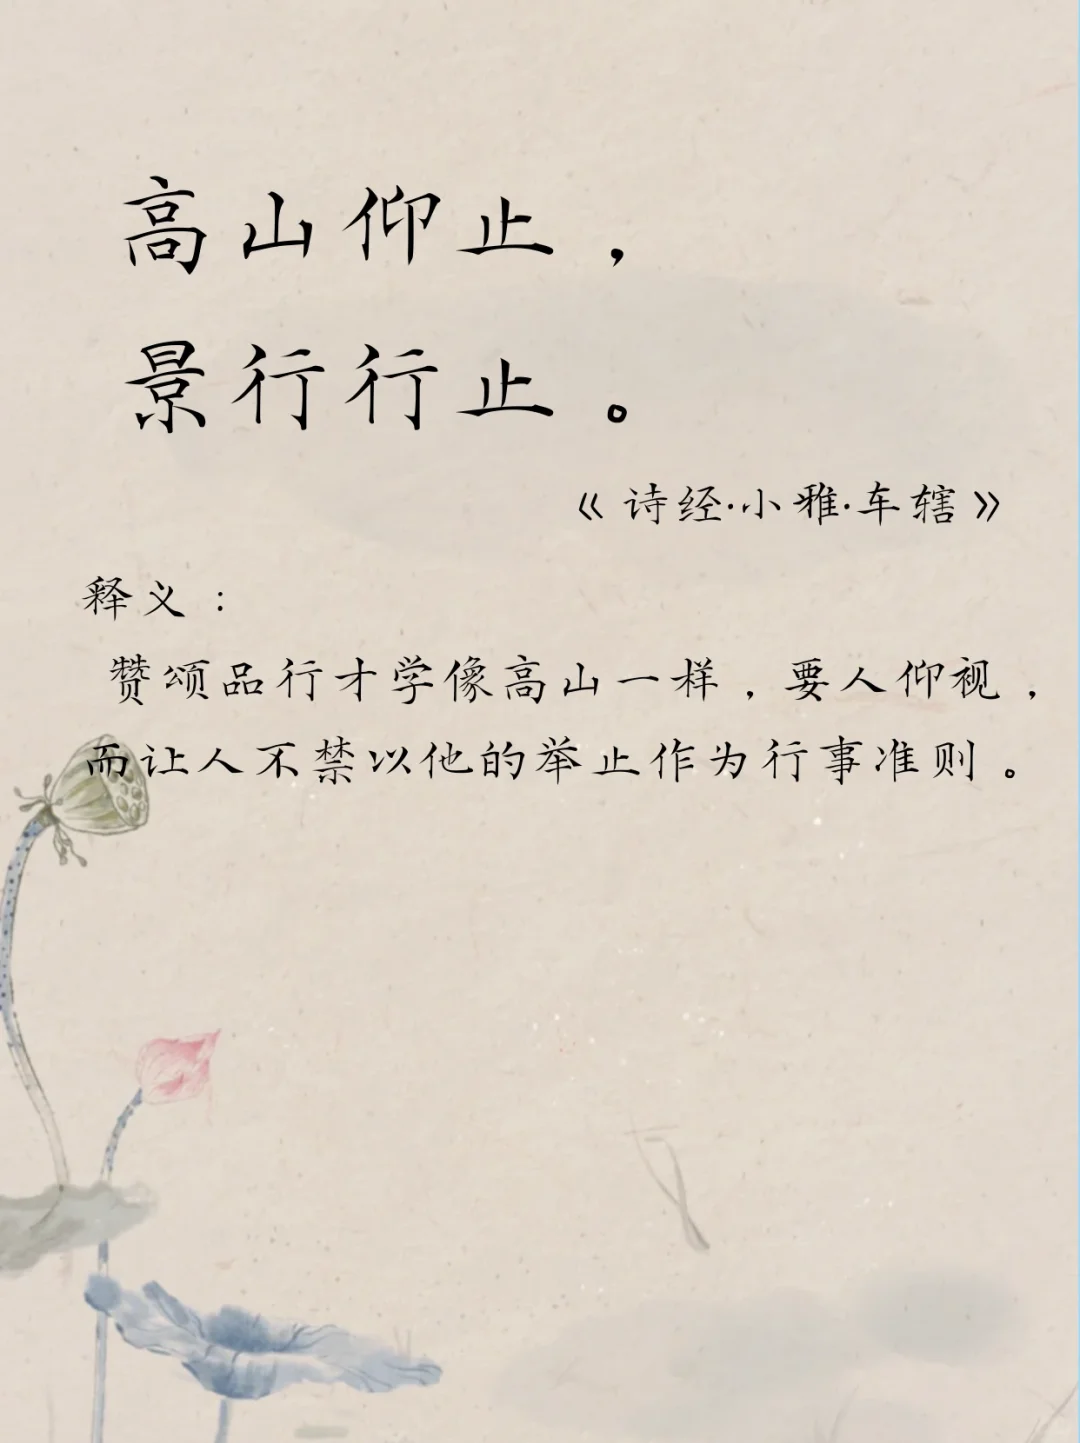 高山仰止，
景行行止。
《诗经·小雅·车辖》
释义：
赞颂品行才学像高山一样，要人仰视，
而让人不禁以他的举止作为行事准则。